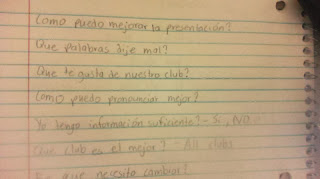 Como puedo mejorar la presentación?
Que palabras dije mal?
Que te gusta de nuestro club?
Como puedo pronounciar mejor?
Yo tengo información suficiente? - Si, NO
Que club es el mejor? - All clubs
que necesito cambiar?